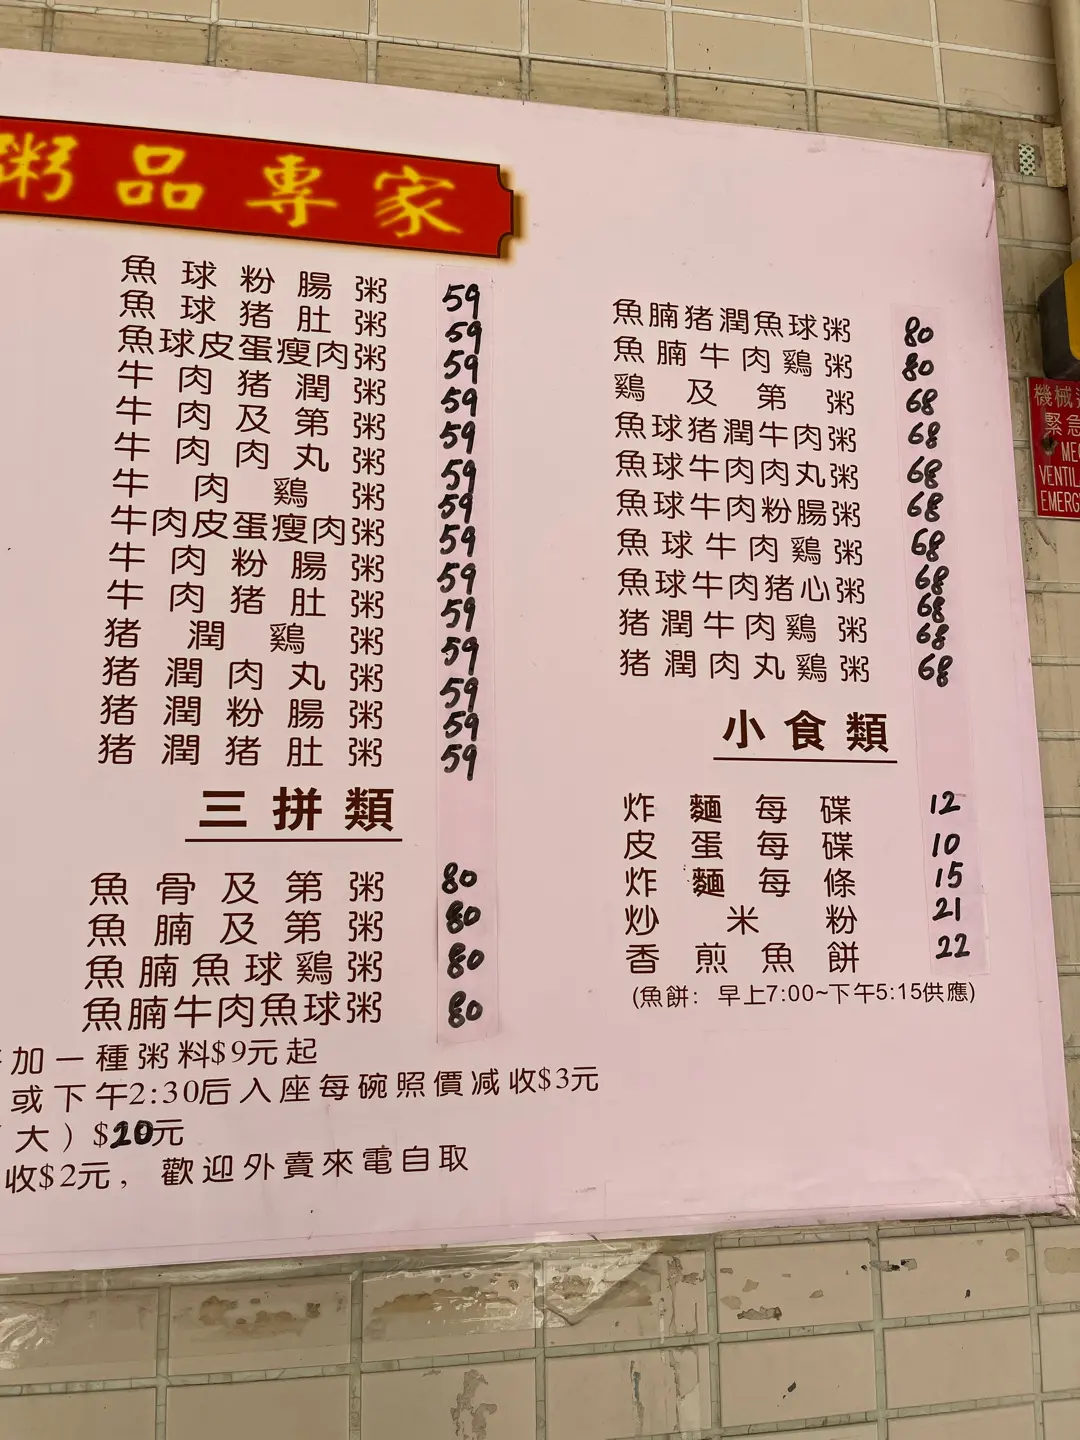 粥品專家
魚球粉腸粥 59
魚球猪肚粥 59
魚球皮蛋瘦肉粥 59
牛肉猪潤粥 59
牛肉及第粥 59
牛肉肉丸粥 59
牛肉鷄粥 59
牛肉皮蛋瘦肉粥 59
牛肉粉腸粥 59
牛肉猪肚粥 59
猪潤鷄粥 59
猪潤肉丸粥 59
猪潤粉腸粥 59
猪潤猪肚粥 59
三拼類
魚骨及第粥 80
魚腩及第粥 80
魚腩魚球鷄粥 80
魚腩牛肉魚球粥 80
魚腩猪潤魚球粥 80
魚腩牛肉鷄粥 80
鷄及第粥 68
魚球猪潤牛肉粥 68
魚球牛肉肉丸粥 68
魚球牛肉粉腸粥 68
魚球牛肉鷄粥 68
魚球牛肉猪心粥 68
68
猪潤牛肉鷄粥 68
猪潤肉丸鷄粥 68
小食類
炸麵每碟 12
皮蛋每碟 10
炸麵每條 15
炒米粉 21
香煎魚餅 22
(魚餅：早上7:00~下午5:15供應)
加一種粥料$9元起
或下午2:30后入座每碗照價減收$3元
大）$20元
收$2元，歡迎外賣來電自取
機械
緊急
VENTIL
EMERG